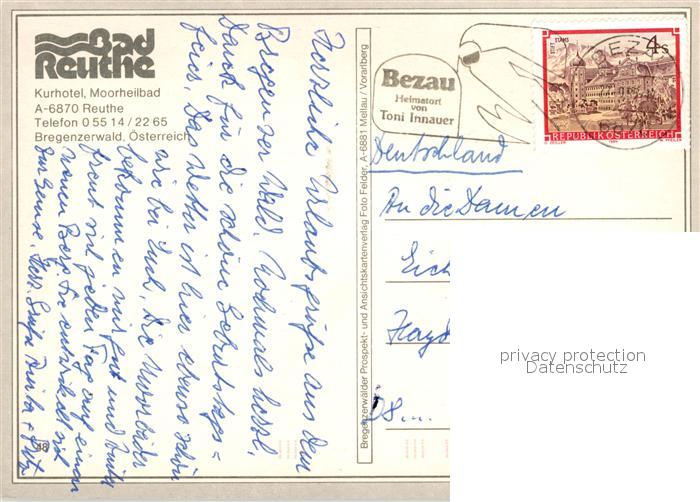 Bad
Reuthe
Kurhotel, Moorheilbad
A-6870 Reuthe
Telefon 0 55 14 / 22 65
Bregenzerwald, Österreich
Herzliche Urlaubsgrüße aus dem
Bregenzer Wald. Nochmals herzl.
Dank für die schöne Geburtstags=
feier. Das Wetter ist hier ebenso schön
wie bei Euch. Die Moorbäder
bekommen mir gut und
freut sich jeden Tag auf einen
neuen Berg. Sie entwickelt sich
zur Gemse. Herz. Grüße
48
Bregenzerwälder Prospekt- und Ansichtskartenverlag Foto Felder, A-6881 Mellau / Vorarlberg
Bezau
Heimatort
von
Toni Innauer
STIFT STAMS
4 S
REPUBLIK ÖSTERREICH
Deutschland
An die Damen
Eich
Hayd
D8...
privacy protection
Datenschutz